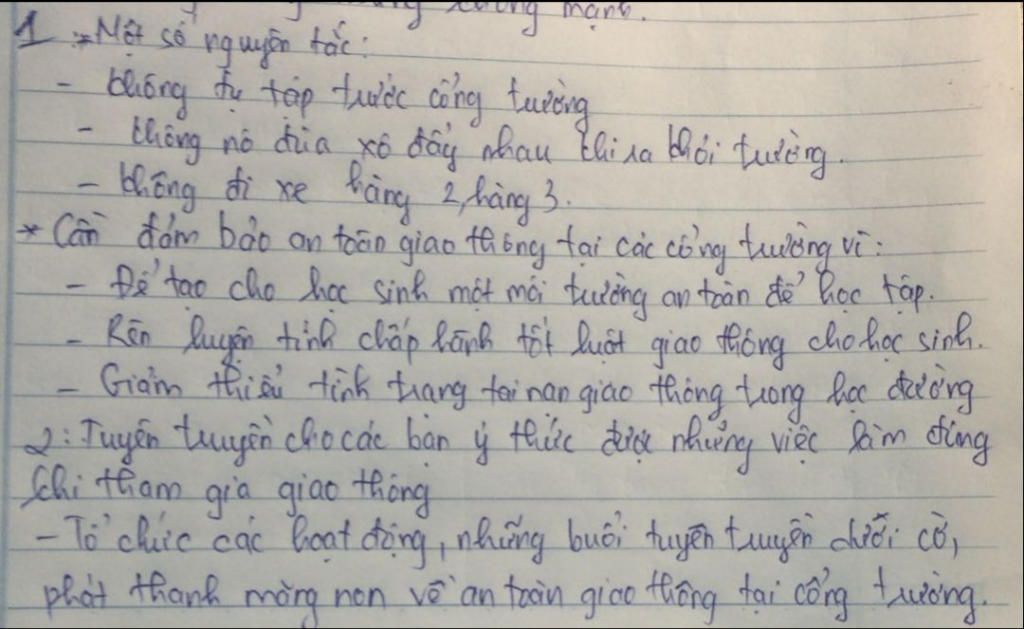 mạnh.
1 :* Một số nguyên tắc:
- không tụ tập trước cổng trường
- không nô đùa xô đẩy nhau khi ra khỏi trường.
- không đi xe hàng 2, hàng 3.
* Cần đảm bảo an toàn giao thông tại các cổng trường vì:
- Để tạo cho học sinh một môi trường an toàn để học tập.
- Rèn luyện tính chấp hành tốt luật giao thông cho học sinh.
- Giảm thiểu tình trạng tai nạn giao thông trong học đường
2: Tuyên truyền cho các bạn ý thức được những việc làm đúng
khi tham gia giao thông
- Tổ chức các hoạt động, những buổi tuyên truyền dưới cờ,
phát thanh măng non về an toàn giao thông tại cổng trường.